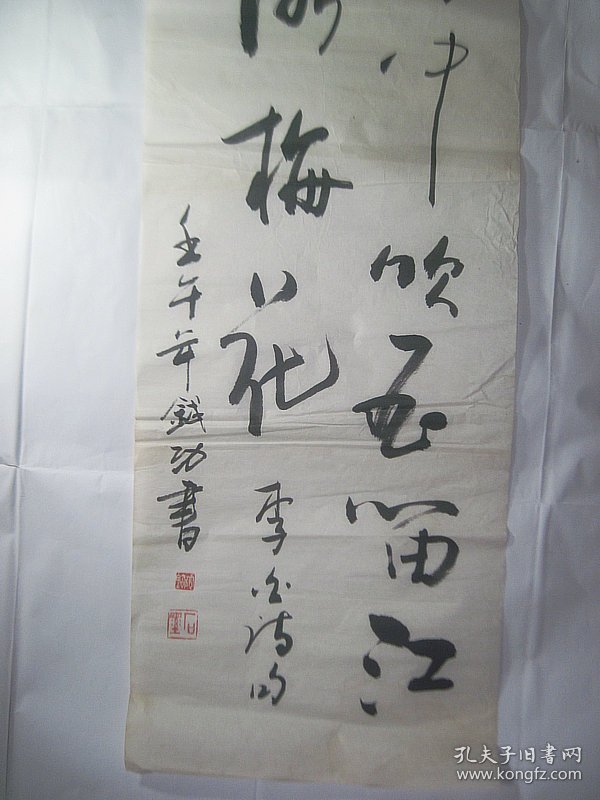 中吹玉笛江
梅花 李白诗句
壬午年功書
孔夫子旧書网
www.kongfz.com